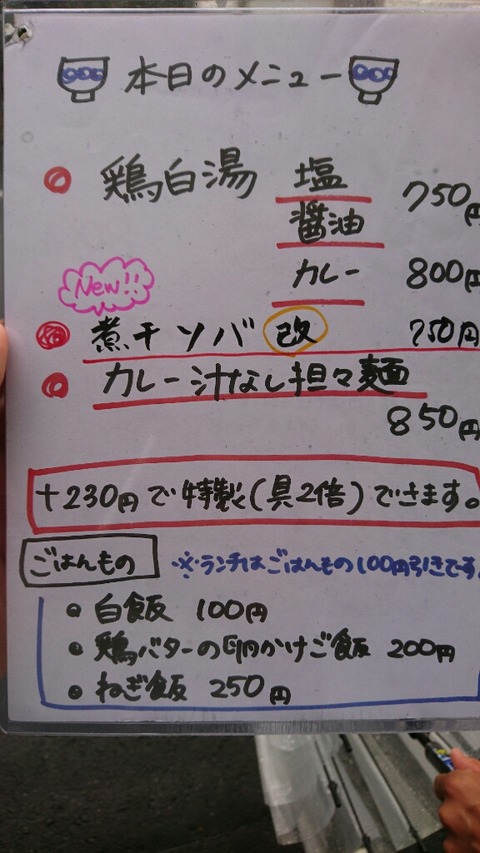 本日のメニュー
鶏白湯 塩 750円
醤油
カレー 800円
New!!
煮干ソバ 改 750円
カレー汁なし担々麺
850円
+230円で特製(具2倍)できます。
ごはんもの ※ランチはごはんもの100円引きです
・白飯 100円
・鶏バターの卵かけご飯 200円
・ねぎ飯 250円